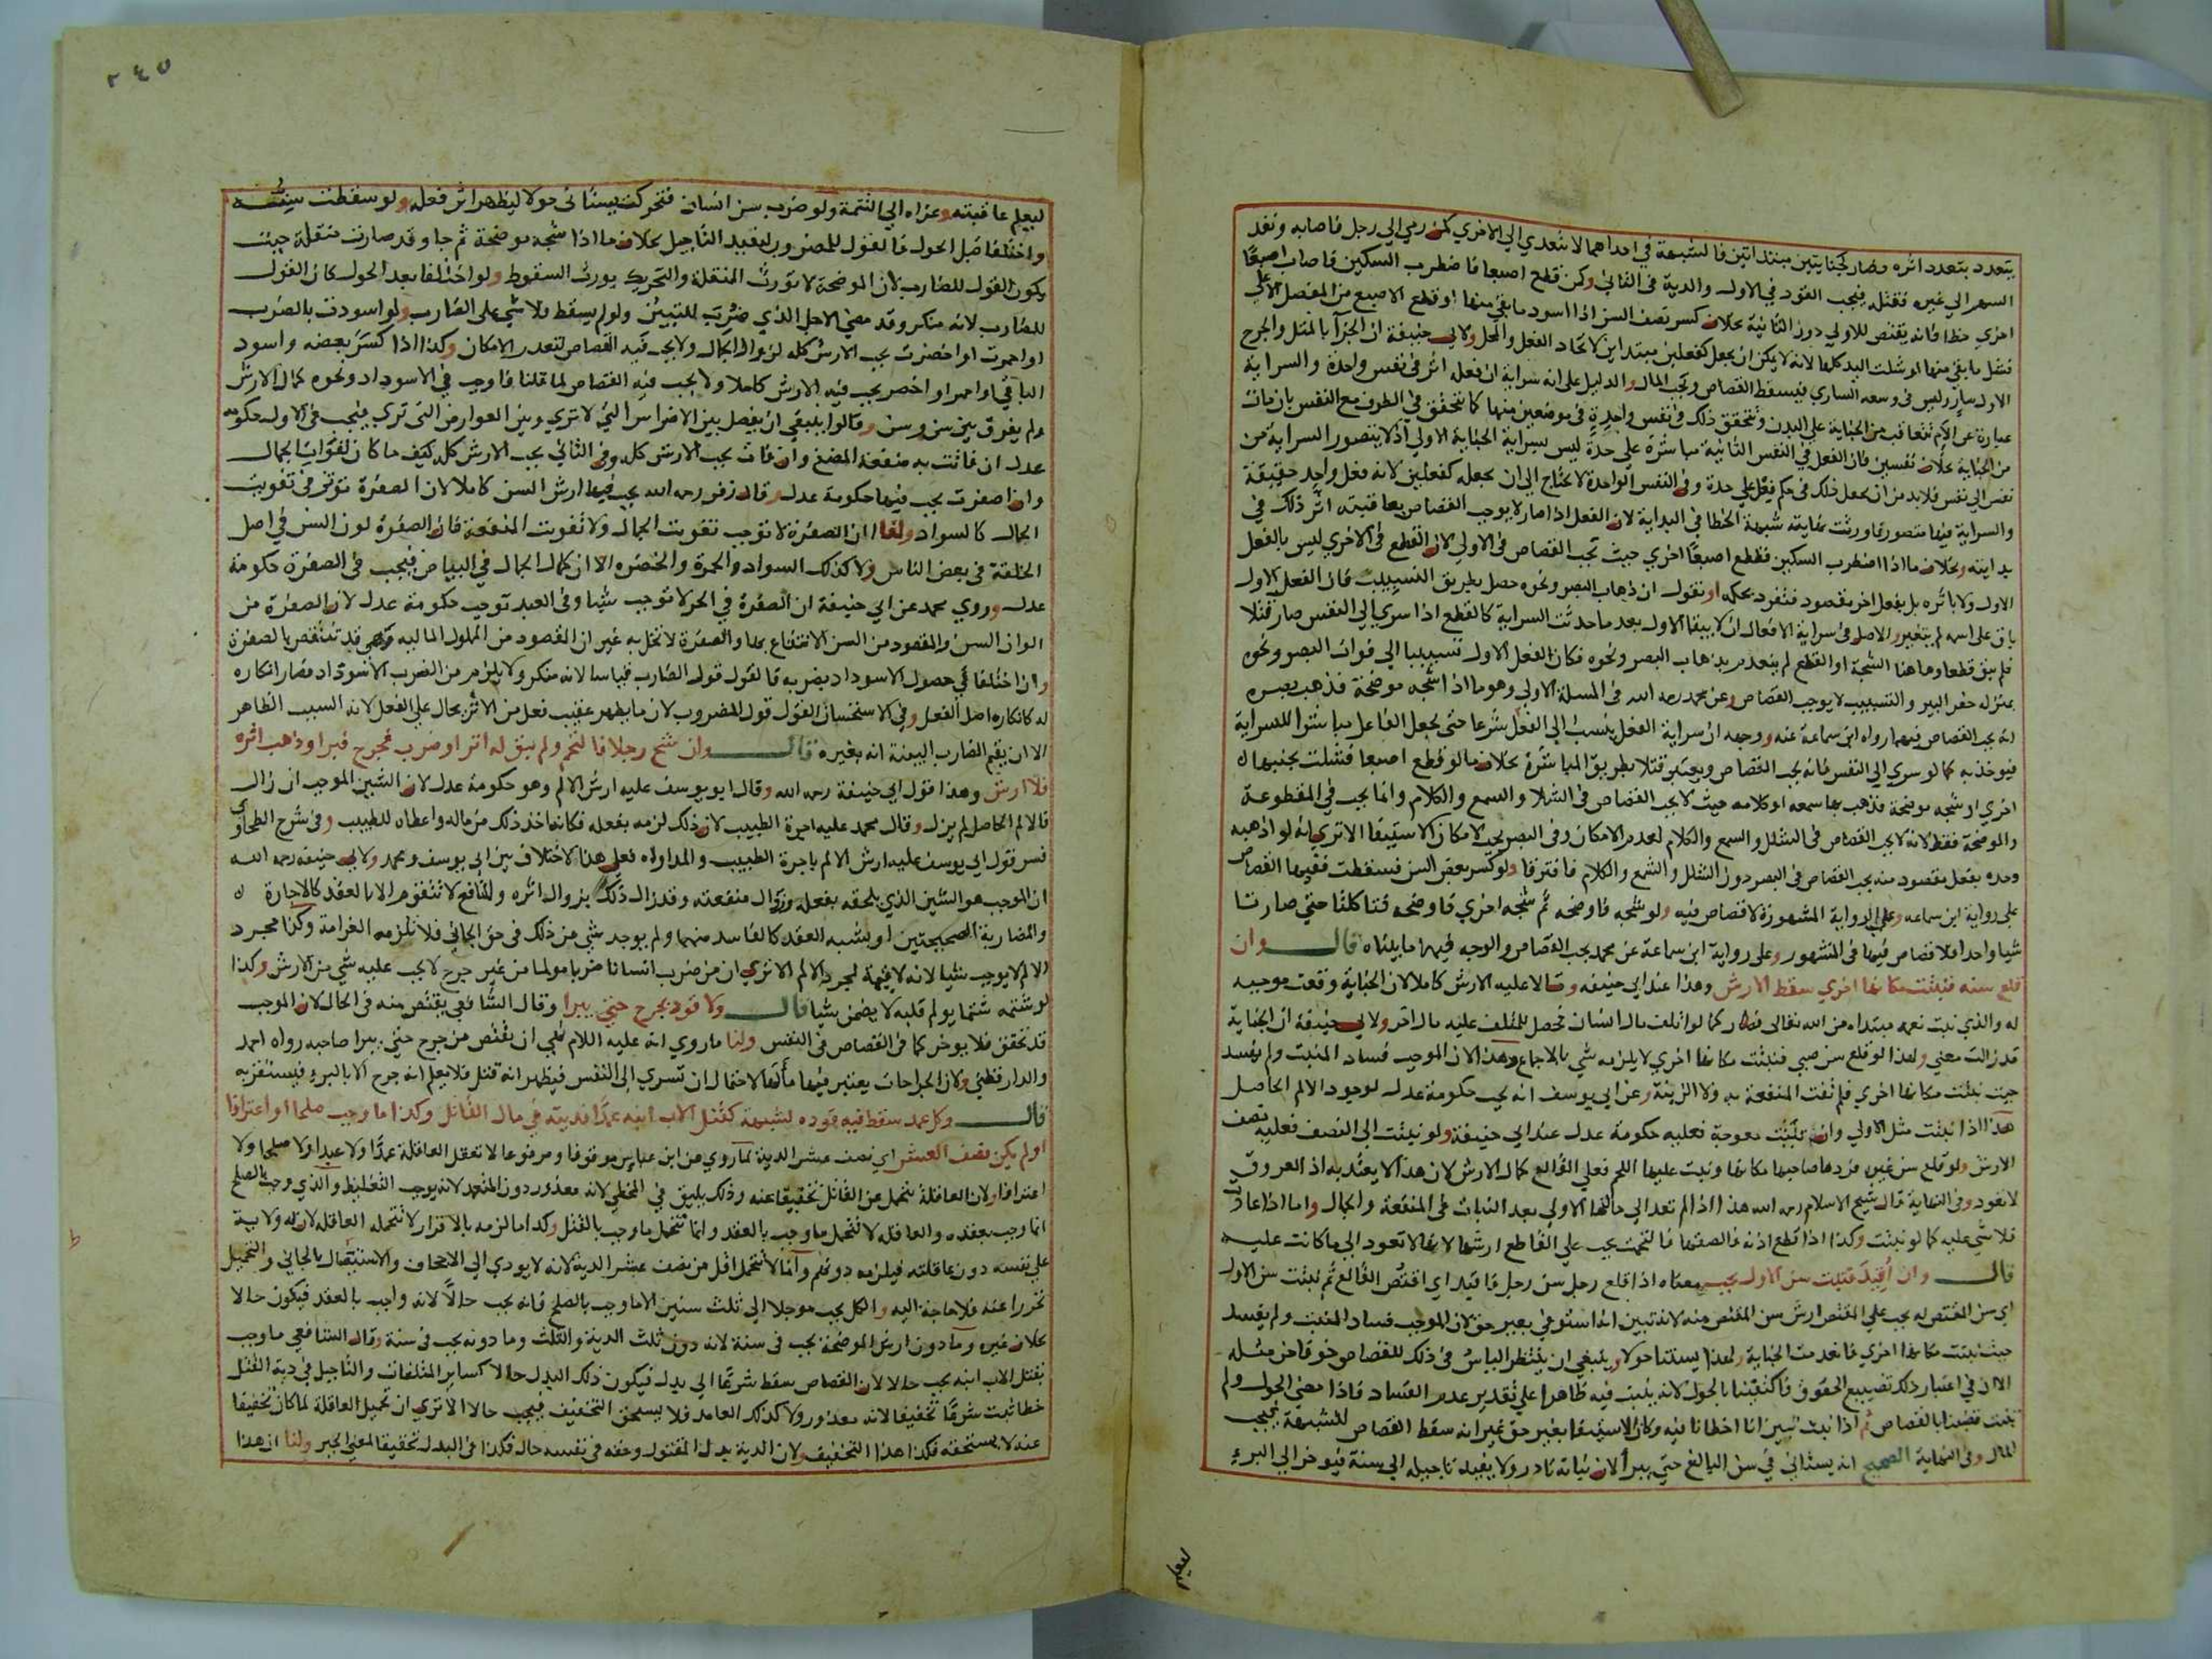 يتعدد بتعدد اثره فصار كجنايتين مبتداتين فالشبهة في احداهما لا تتعدي الي الاخري كمن رمي الي رجل فاصابه ونفد
السهم الي غيره فقتله فيجب القود في الاول والدية في الثاني وكمن قطع اصبعا فاضطرب السكين فاصاب اصبعا
اخري خطا فانه يقتص للاولي دون الثانية بخلاف كسر نصف السن اذا اسود ما بقي منها او قطع الاصبع من المفصل الاعلي
فشل ما بقي منها او شلت اليد كلها لانه لا يمكن ان يجعل كفعلين مبتداين لاتحاد الفعل والمحل ولابي حنيفة ان الجزآ بالمثل والجرح
الاول سارٍ وليس في وسعه الساري فيسقط القصاص ويجب المال والدليل علي انه سراية ان فعله اثر في نفس واحدة والسراية
عبارة عن الام تتعاقب من الجناية علي البدن ويتحقق ذلك في نفس واحدة في موضعين منها كما يتحقق في الطرف مع النفس بان مات
من الجناية بخلاف نفسين فان الفعل في النفس الثانية مباشرة علي حدة ليس بسراية الجناية الاولي اذ لا يتصور السراية من
نفس الي نفس فلا بد من ان يجعل ذلك في حكم فعل علي حدة وفي النفس الواحدة لا يحتاج الي ان يجعله كفعلين لانه فعل واحد حقيقة
والسراية فيها متصور فاورثت نهايته شبهة الخطا في البداية لان الفعل اذا صار لا يوجب القصاص بعاقبته اثر ذلك في
بدايته وبخلاف ما اذا اضطرب السكين فقطع اصبعا اخري حيث يجب القصاص في الاولي لان القطع في الاخري ليس بالفعل
الاول ولا باثره بل بفعل اخر مقصود فتفرد بحكمه او نقول ان ذهاب البصر ونحوه حصل بطريق التسبيب فان الفعل الاول
باق علي اسمه لم يتغير والاصل في سراية الافعال ان لا يبقا الاول بعد ما حدثت السراية كالقطع اذا سري الي النفس صار قتلا
فلم يبق قطعا وهاهنا الشجة او القطع لم ينعدم بذهاب البصر ونحوه فكان الفعل الاول تسبيبا الي فوات البصر ونحوه
بمنزلة حفر البير والتسبيب لا يوجب القصاص وعن محمد رحمه الله في المسلة الاولي وهو ما اذا شجه موضحة فذهب بصره
انه يجب القصاص فيهما رواه ابن سماعة عنه ووجهه ان سراية الفعل ينسب الي الفعل شرعا حتي يجعل الفاعل مباشرا للسراية
فيوخذ به كما لو سري الي النفس فانه يجب القصاص ويعتبر قتلا بطريق المباشرة بخلاف ما لو قطع اصبعا فشلت بجنبها
اخري او شجه موضحة فذهب بها سمعه او كلامه حيث لا يجب القصاص في الشلا والسمع والكلام وانما يجب في المقطوعة
والموضحة فقط لانه لا يجب القصاص في الشلل والسمع والكلام لعدم الامكان وفي البصر يجب لامكان الاستيفا الا تري انه لو اذهبه
وحده بفعل مقصود منه يجب القصاص في البصر دون الشلل والسمع والكلام فافترقا ولو كسر بعض السن فسقطت ففيها القصاص
علي رواية ابن سماعه وعلي الرواية المشهورة لا قصاص فيه ولو شجه فاوضحه ثم شجه اخري فاوضحه فتاكلتا حتي صارتا
شيا واحدا فلا قصاص فيهما في المشهور وعلي رواية ابن سماعة عن محمد يجب القصاص والوجه فيهما ما بيناه قال وان
قلع سنه فنبتت مكانها اخري سقط الارش وهذا عند ابي حنيفه وقالا عليه الارش كاملا لان الجناية وقعت موجبه
له والذي نبت نعمة مبتداه من الله تعالي فصار كما لو اتلف مال انسان فحصل للمتلف عليه مال اخر ولابي حنيفة ان الجناية
قد زالت معني ولهذا لو قلع سن صبي فنبتت مكانها اخري لا يلزمه شي بالاجماع وهذا لان الموجب فساد المنبت ولم يفسد
حيث نبتت مكانها اخري فلم تفت المنفعة به ولا الزينة وعن ابي يوسف انه يجب حكومة عدل لوجود الالم الحاصل
هذا اذا نبتت مثل الاولي وان نبتت معوجة فعليه حكومة عدل عند ابي حنيفة ولو نبتت الي النصف فعليه نصف
الارش ولو قلع سن غيره فردها صاحبها مكانها ونبت عليها اللحم فعلي القالع كمال الارش لان هذا لا يعتد به اذ العروق
لا تعود وفي النهاية قال شيخ الاسلام رحمه الله هذا اذا لم تعد الي حالتها الاولي بعد النبات في المنفعة والجمال واما اذا عادت
فلا شي عليه كما لو نبتت وكذا اذا قطع اذنه فالصقها فالتحمت يجب علي القاطع ارشها لانها لا تعود الي ما كانت عليه
قال وان اُقِيدَ فنبتت سن الاول يجب معناه اذا قلع رجل سن رجل فاقيد اي اقتص القالع ثم نبتت سن الاول
اي سن المقتص له يجب علي المقتص ارش سن المقتص منه لانه تبين انه استوفي بغير حق لان الموجب فساد المنبت ولم يفسد
حيث نبتت مكانها اخري فانعدمت الجناية ولهذا يستانا حولا وينبغي ان ينتظر الياس في ذلك للقصاص خوفا من مثله
الا ان في اعتبار ذلك تضييع الحقوق فاكتفينا بالحول لانه ينبت فيه ظاهرا علي تقدير عدم الفساد فاذا مضي الحول ولم
تنبت قضينا بالقصاص ثم اذا نبتت تبين انا اخطانا فيه وكان الاستيفا بغير حق غير انه سقط القصاص للشبهة فيجب
المال وفي النهاية الصحيح انه يستاني في سن البالغ حتي يبرا لان نباته نادر ولا يفيد تاجيله الي سنة فيوخر الي البرء
ليعلم
٢٤٥
ليعلم عاقبته وعزاه الي التتمة ولو ضرب سن انسان فتحركت يستانى حولا ليظهر اثر فعله ولو سقطت سنه
واختلفا قبل الحول فالقول للمضروب ليفيد التاجيل بخلاف ما اذا شجه موضحة ثم جا وقد صارت منقلة حيث
يكون القول للضارب لان الموضحة لا تورث المنقلة والتحريك يورث السقوط ولو اختلفا بعد الحول كان القول
للضارب لانه منكر وقد مضي الاجل الذي ضُرِبَ للتبيين ولو لم يسقط فلا شي علي الضارب ولو اسودت بالضرب
او احمرت او اخضرت يجب الارش كله لزوال الجمال ولا يجب فيه القصاص لتعدر الامكان وكذا اذا كسر بعضه واسود
الباقي او احمر او اخضر يجب فيه الارش كاملا ولا يجب فيه القصاص لما قلنا فاوجب في الاسوداد ونحوه كمال الارش
ولم يفرق بين سن وسن وقالوا ينبغي ان يفصل بين الاضراس التي لا تري وبين العوارض التي تري فيجب في الاول حكومة
عدل ان فاتت به منفعة المضغ وان فات يجب الارش كله وفي الثاني يجب الارش كله كيف ما كان لفوات الجمال
وان اصفرت يجب فيها حكومة عدل وقال زفر رحمه الله يجب فيها ارش السن كاملا لان الصفرة توثر في تفويت
الجمال كالسواد ولنا ان الصفرة لا توجب تفويت الجمال ولا تفويت المنفعة فان الصفرة لون السن في اصل
الخلقة في بعض الناس ولا كذلك السواد والحمرة والخضره الا ان كمال الجمال في البياض فيجب في الصفرة حكومة
عدل وروي محمد عن ابي حنيفة ان الصفرة في الحر لا توجب شيا وفي العبد توجب حكومة عدل لان الصفرة من
الوان السن والمقصود من السن الانتفاع بها والصفرة لا تخل به غير ان المقصود من المملوك الماليه وهي قد تنتقص بالصفرة
وان اختلفا في حصول الاسوداد بضربه فالقول قول الضارب قياسا لانه منكر ولا يلزم من الضرب الاسوداد فصار انكاره
له كانكاره اصل الفعل وفي الاستحسان القول قول المضروب لان ما يظهر عقيب فعل من الاثر يحال علي الفعل لانه السبب الظاهر
الا ان يقيم الضارب البينة انه بغيره قال وان شج رجلا فالتحم ولم يبق له اثر او ضرب فجرح فبرا وذهب اثره
فلا ارش وهذا قول ابي حنيفة رحمه الله وقال ابو يوسف عليه ارش الالم وهو حكومة عدل لان الشين الموجب ان زال
فالالم الحاصل لم يزل وقال محمد عليه اجرة الطبيب لان ذلك لزمه بفعله فكانه اخذ ذلك من ماله واعطاه للطبيب وفي شرح الطحاوي
فسر قول ابي يوسف عليه ارش الالم باجرة الطبيب والمداواه فعلي هذا لا اختلاف بين ابي يوسف ومحمد ولابي حنيفه رحمه الله
ان الموجب هو الشين الذي يلحقه بفعله وزوال منفعته وقد زال ذلك بزوال اثره والمنافع لا تتقوم الا بالعقد كالاجارة
والمضاربة الصحيحتين او بشبه العقد كالفاسد منهما ولم يوجد شي من ذلك في حق الجاني فلا تلزمه الغرامة وكذا مجرد
الالم لا يوجب شيا لانه لا قيمة لمجرد الالم الا تري ان من ضرب انسانا ضربا مولما من غير جرح لا يجب عليه شي من الارش وكذا
لو شتمه شتما يولم قلبه لا يضمن شيا قال ولا قود بجرح حتي يبرا وقال الشافعي يقتص منه في الحال لان الموجب
قد تحقق فلا يوخر كما في القصاص في النفس ولنا ما روي انه عليه اللام نهي ان يقتص من جرح حتي يبرا صاحبه رواه احمد
والدارقطني ولان الجراحات يعتبر فيها مآلها لاحتمال ان تسري الي النفس فيظهر انه قتل فلا يعلم انه جرح الا بالبرء فيستقر به
قال وكل عمد سقط فيه قوده لشبهة كقتل الاب ابنه عمدا فديته في مال القاتل وكذا ما وجب صلحا او اعترافا
او لم يكن نصف العشر اي نصف عشر الدية لما روي عن ابن عباس موقوفا ومرفوعا لا تعقل العاقلة عمدا ولا عبدا ولا صلحا ولا
اعترافا ولان العاقلة تتحمل عن القاتل تخفيفا عنه وذلك يليق في المخطي لانه معذور دون المتعمد لانه يوجب التغليظ والذي وجب بالصلح
انما وجب بعقده والعاقله لا تتحمل ما وجب بالعقد وانما تتحمل ما وجب بالقتل وكدا ما لزمه بالاقرار لا تتحمله العاقله لان له ولاية
علي نفسه دون عاقلته فيلزمه دونهم وانما لا تتحمل اقل من نصف عشر الدية لانه لا يودي الي الاجحاف والاستيصال بالجاني والتحميل
تحررا عنه فلا حاجة اليه والكل يجب موجلا الي ثلث سنين الا ما وجب بالصلح فانه يجب حالًا لانه واجب بالعقد فيكون حالا
بخلاف غيره وما دون ارش الموضحة يجب في سنة لانه دون ثلث الدية والثلث وما دونه يجب في سنة وقال الشافعي ما وجب
بقتل الاب ابنه يجب حالا لان القصاص سقط شرعا الي بدل فيكون ذلك البدل حالا كساير المتلفات والتاجيل في دية القتل
خطا ثبت شرعا تخفيفا لانه معذور ولا كذلك العامد فلا يستحق التخفيف فيجب حالا الا تري ان تحمل العاقلة لما كان تخفيفا
عنه لا يستحقه فكذا هذا التخفيف ولان الدية بدل المقتول وحقه في نفسه حال فكذا في البدل تحقيقا لمعني الجبر ولنا ان هذا